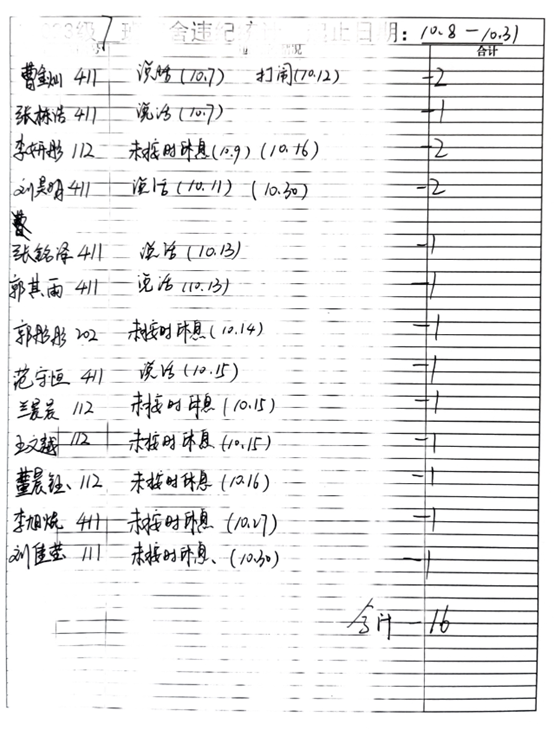 级7 舍违纪 止日期：10.8-10.31
况 合计
曹金灿 411 说话(10.7) 打闹(10.12) -2
张栋浩 411 说话(10.7) -1
李妍彤 112 未按时休息(10.9) (10.16) -2
刘昊明 411 说话(10.11) (10.30) -2
张铭泽 411 说话(10.13) -1
郭其雨 411 说话(10.13) -1
郭彤彤 202 未按时休息(10.14) -1
范守恒 411 说话(10.15) -1
兰晨晨 112 未按时休息(10.15) -1
王文越 112 未按时休息(10.15) -1
董晨钰、112 未按时休息(10.16) -1
李旭 411 未按时休息(10.27) -1
刘佳芸 111 未按时休息、(10.30) -1
合计 -16